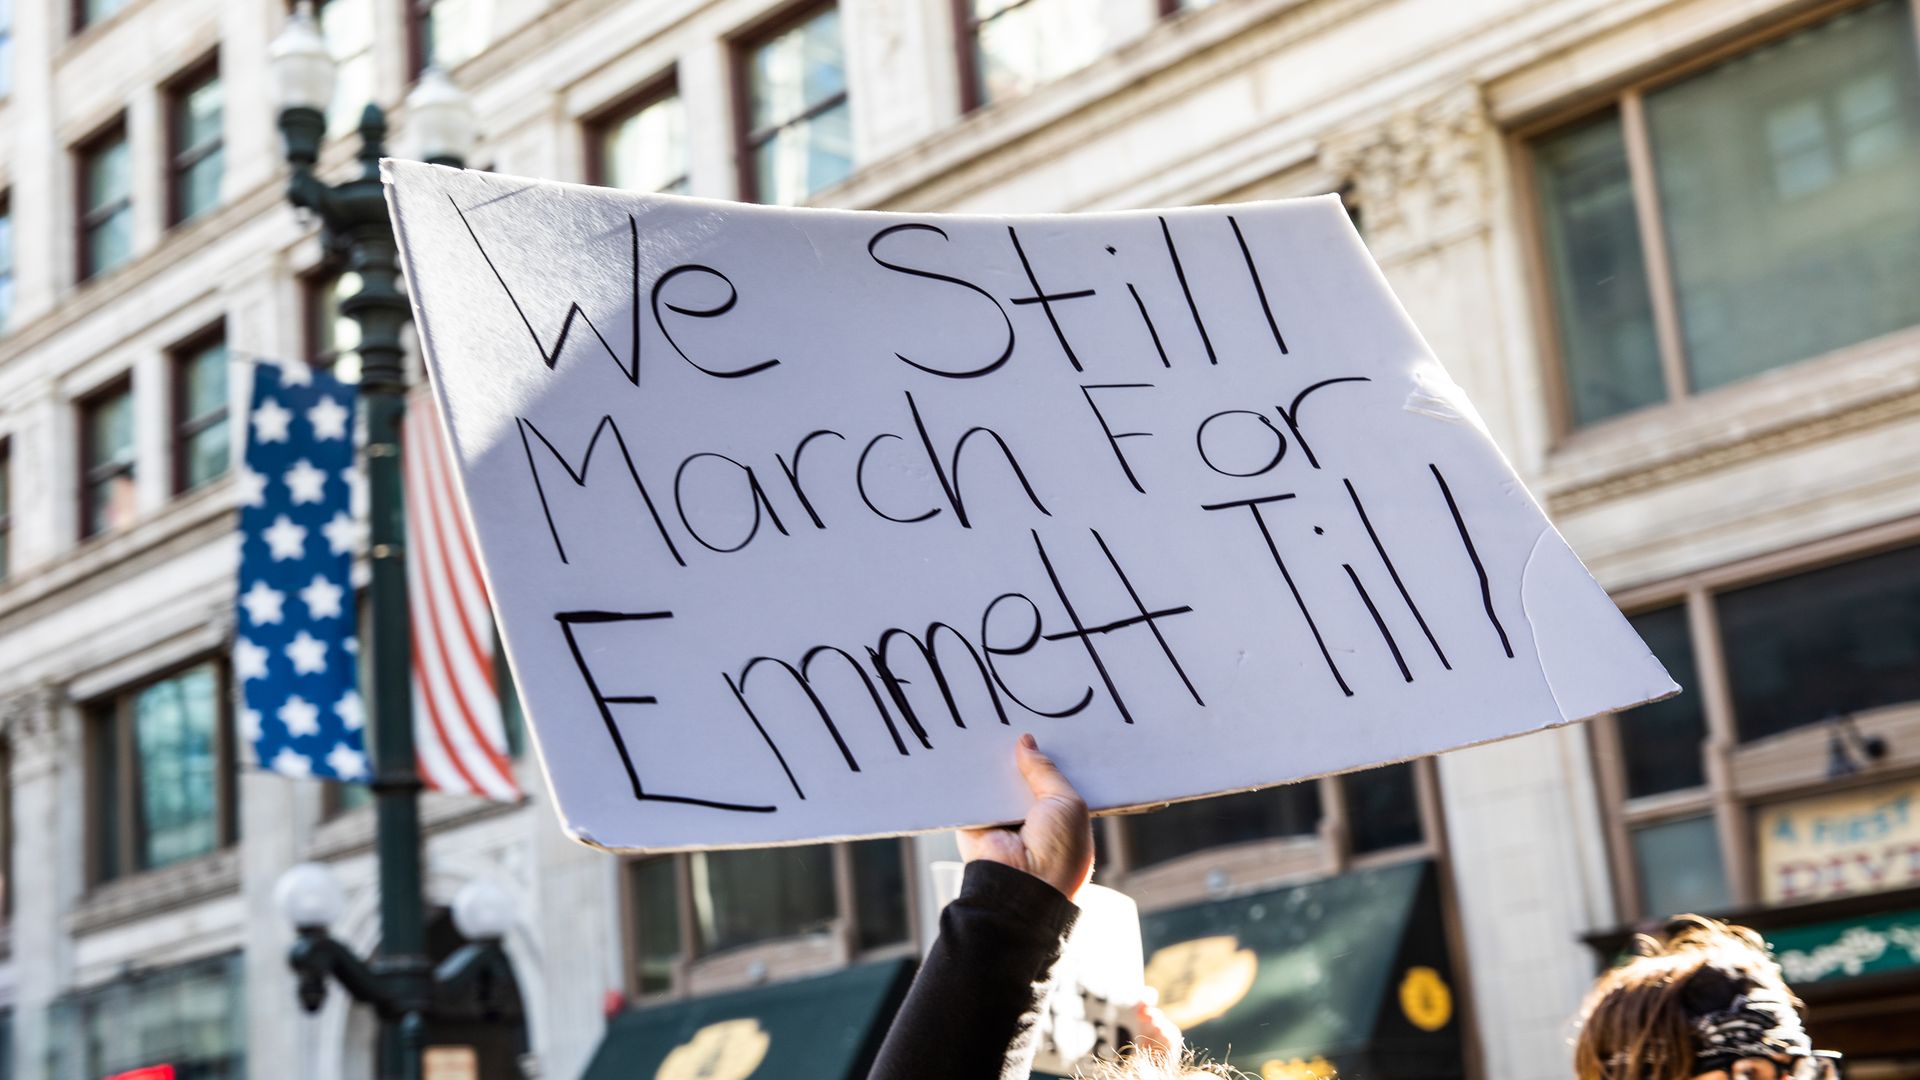 We Still
March For
Emmett Till
A FIRST
DIVE